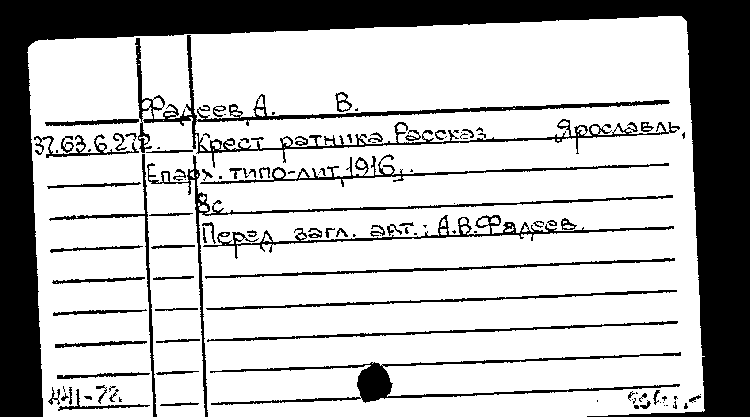 Фадеев, А. В.
37.63.6.272. Крест ратника. Рассказ. [Ярославль,
Епарх. типо-лит, 1916].
8с.
Перед загл. авт.: А.В.Фадеев.
441-72